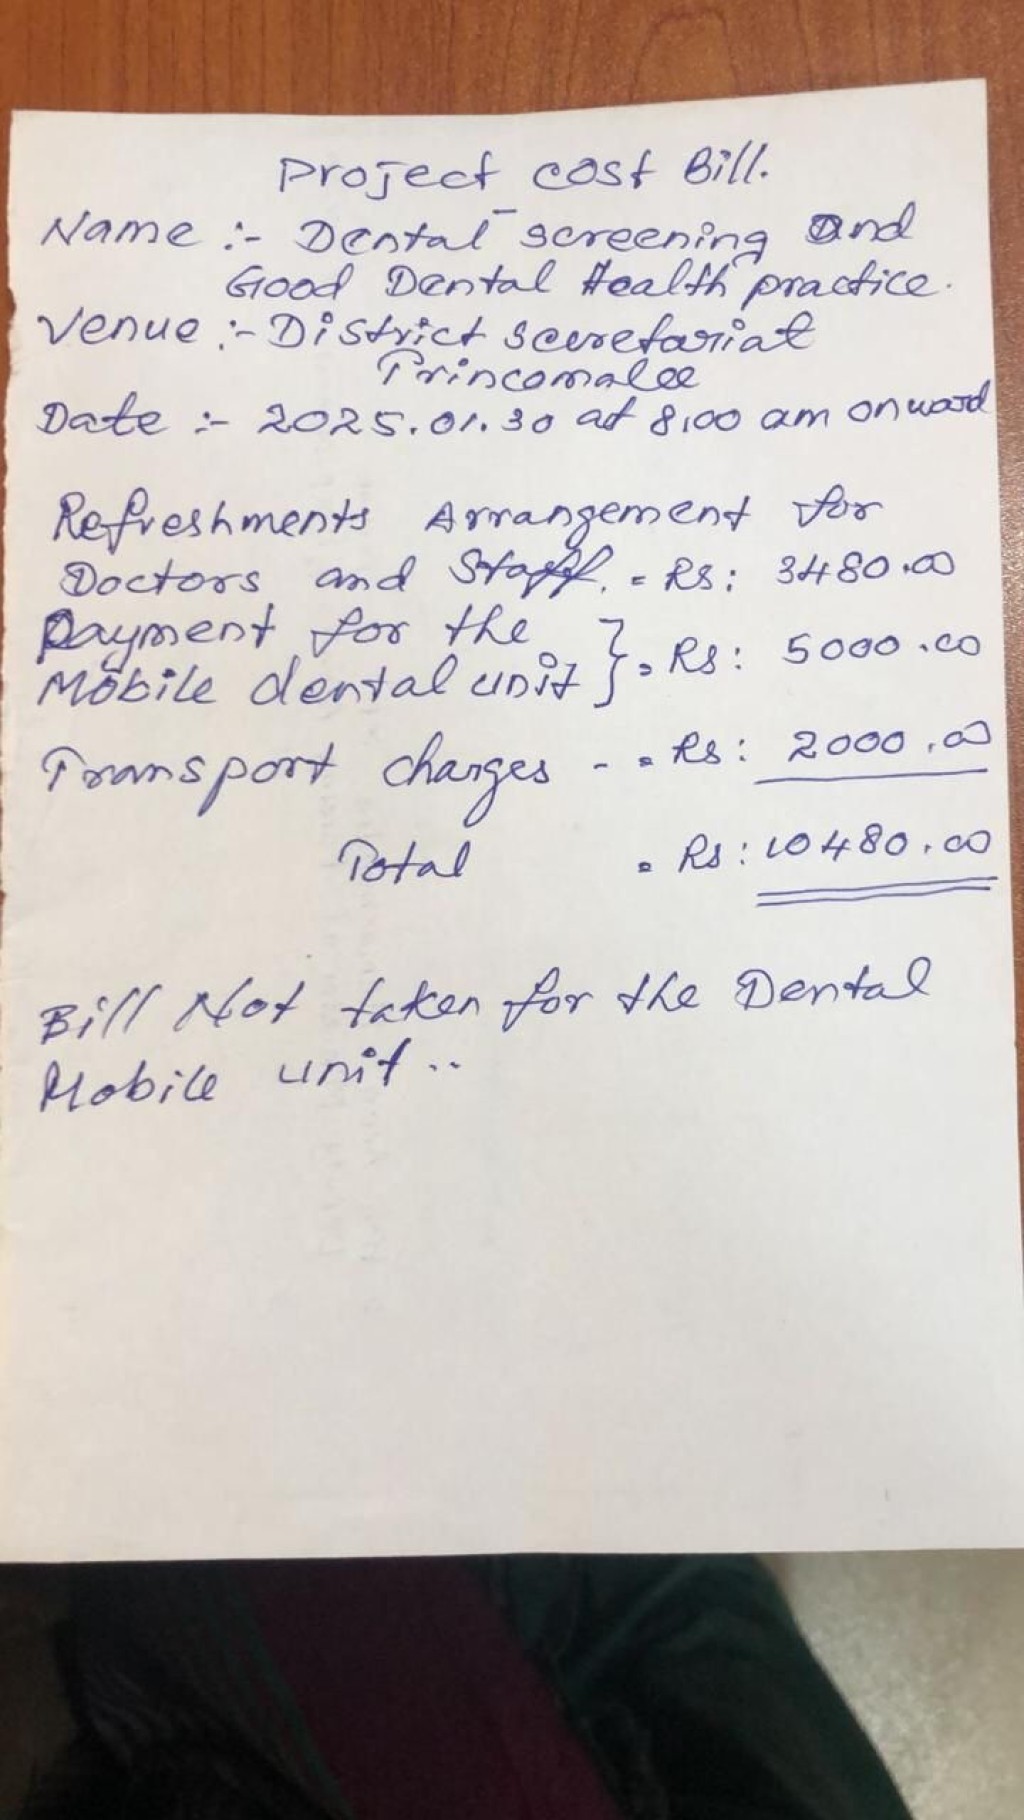 Project cost Bill.
Name :- Dental screening and
Good Dental Health practice.
Venue :- District secretariat
Trincomalee
Date :- 2025.01.30 at 8.00 am onward
Refreshments Arrangement for
Doctors and Staff. = Rs: 3480.00
Payment for the
Mobile dental unit } = Rs: 5000.00
Transport charges - = Rs: 2000.00
Total = Rs: 10480.00
Bill Not taken for the Dental
Mobile unit..